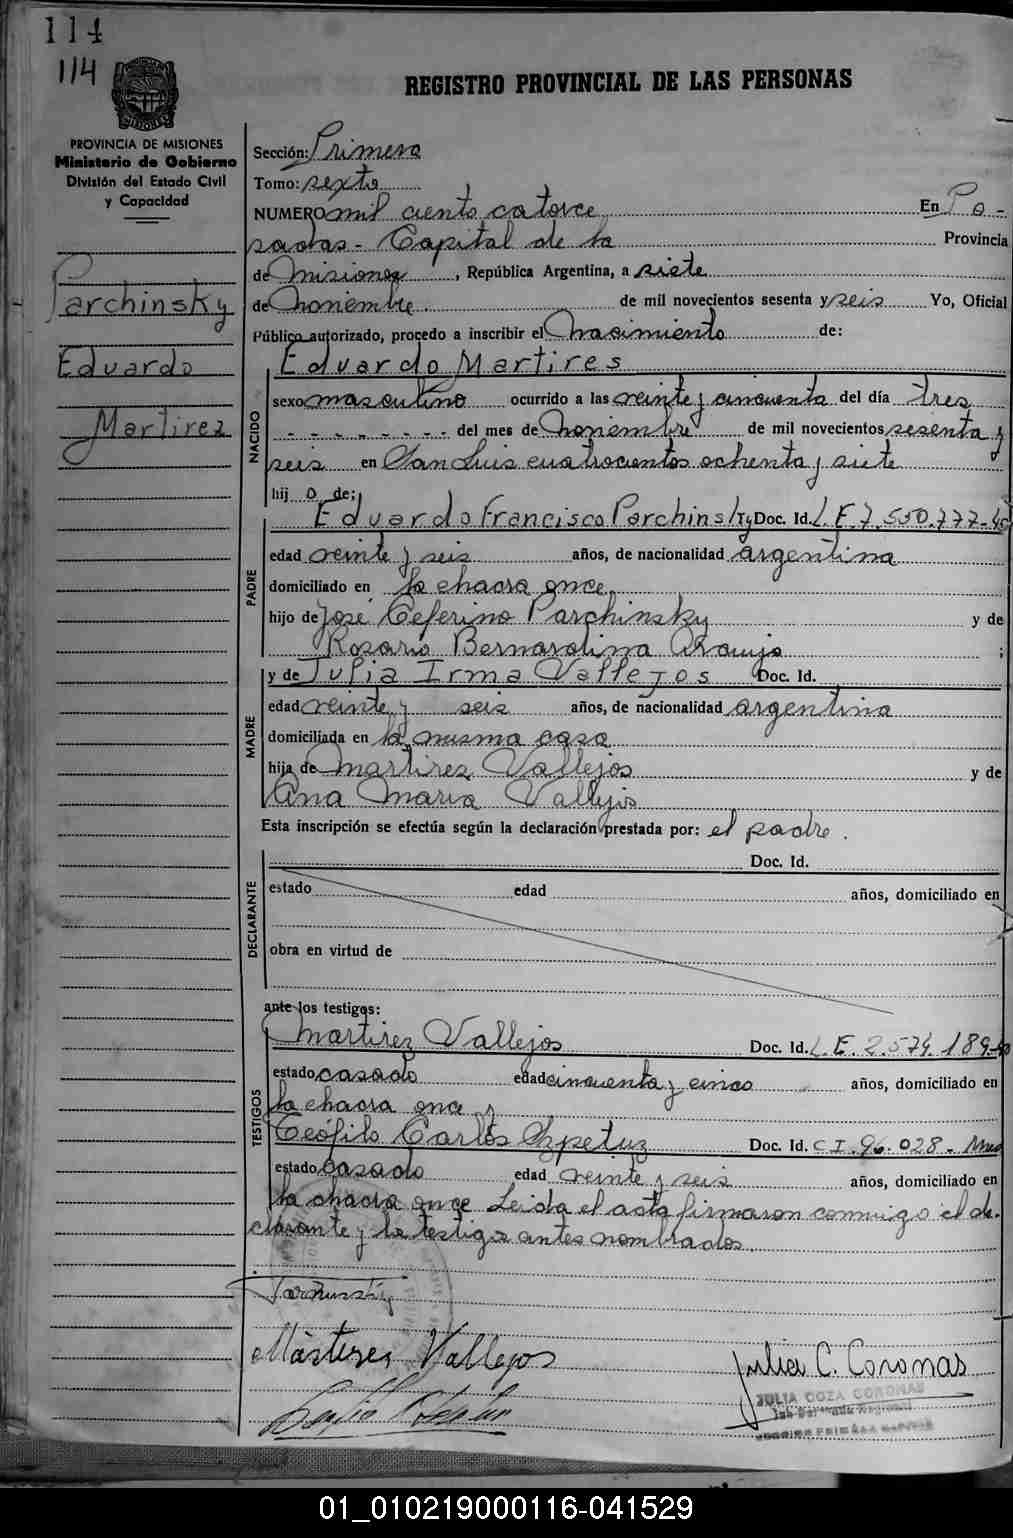 114
114
REGISTRO PROVINCIAL DE LAS PERSONAS
PROVINCIA DE MISIONES
Ministerio de Gobierno
División del Estado Civil
y Capacidad
Parchinsky
Eduardo
Martirez
Sección: Primera
Tomo: sexto
NUMERO mil ciento catorce En Po-
sadas - Capital de la Provincia
de Misiones, República Argentina, a siete
de noviembre de mil novecientos sesenta y seis Yo, Oficial
Público autorizado, procedo a inscribir el nacimiento de:
NACIDO
Eduardo Martires
sexo masculino ocurrido a las veinte y cincuenta del día tres
- - - - - - - - del mes de noviembre de mil novecientos sesenta y
seis en San Luis cuatrocientos ochenta y siete
hij o de;
PADRE
Eduardo Francisco Parchinsky Doc. Id. L.E.7.550.777-
edad veinte y seis años, de nacionalidad argentina
domiciliado en la chacra once
hijo de José Ceferino Parchinsky y de
Rosario Bernardina Araujo ;
MADRE
y de Julia Irma Vallejos Doc. Id.
edad veinte y seis años, de nacionalidad argentina
domiciliada en la misma casa
hija de Martirez Vallejos y de
Ana Maria Vallejos
Esta inscripción se efectúa según la declaración prestada por: el padre.
DECLARANTE
Doc. Id.
estado edad años, domiciliado en
obra en virtud de
ante los testigos:
TESTIGOS
Martirez Vallejos Doc. Id. L.E. 2.574.189-
estado casado edad cincuenta y cinco años, domiciliado en
la chacra once y
Teófilo Carlos Szpetuz Doc. Id. C I. 96.028-
estado casado edad veinte y seis años, domiciliado en
la chacra once Leida el acta firmaron conmigo el de-
clarante y la testigos antes nombrados.
Mártires Vallejos
Julia C. Coronas
JULIA COZA CORONAS
01_010219000116-041529